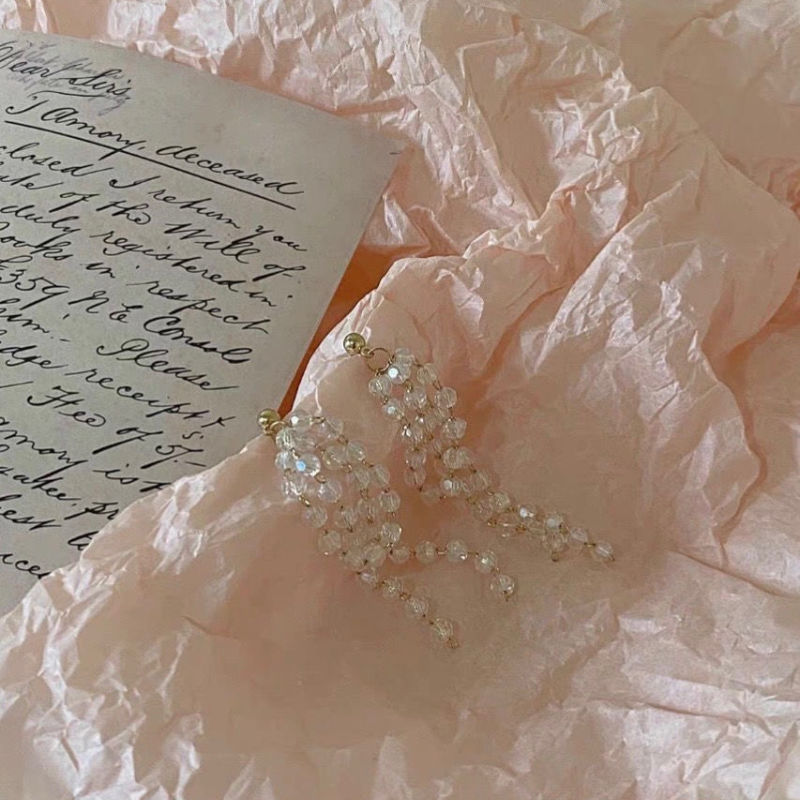 Dear Sirs
J Amory, deceased
closed I return you
of the Will of
duly registered in
Books in respect
£359 N E Consols
him. Please
receipt &
Fee of 5/-
Amory is
take